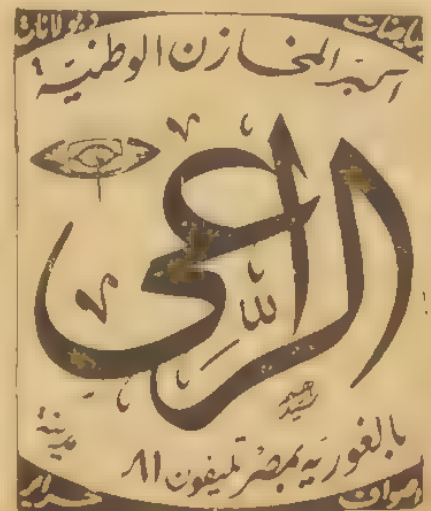 بياضات
دبولانات
اكبر المخازن الوطنية
الراعى
لله
سيد
بالغورية بمصر تليفون ٨١
اصواف
حراير